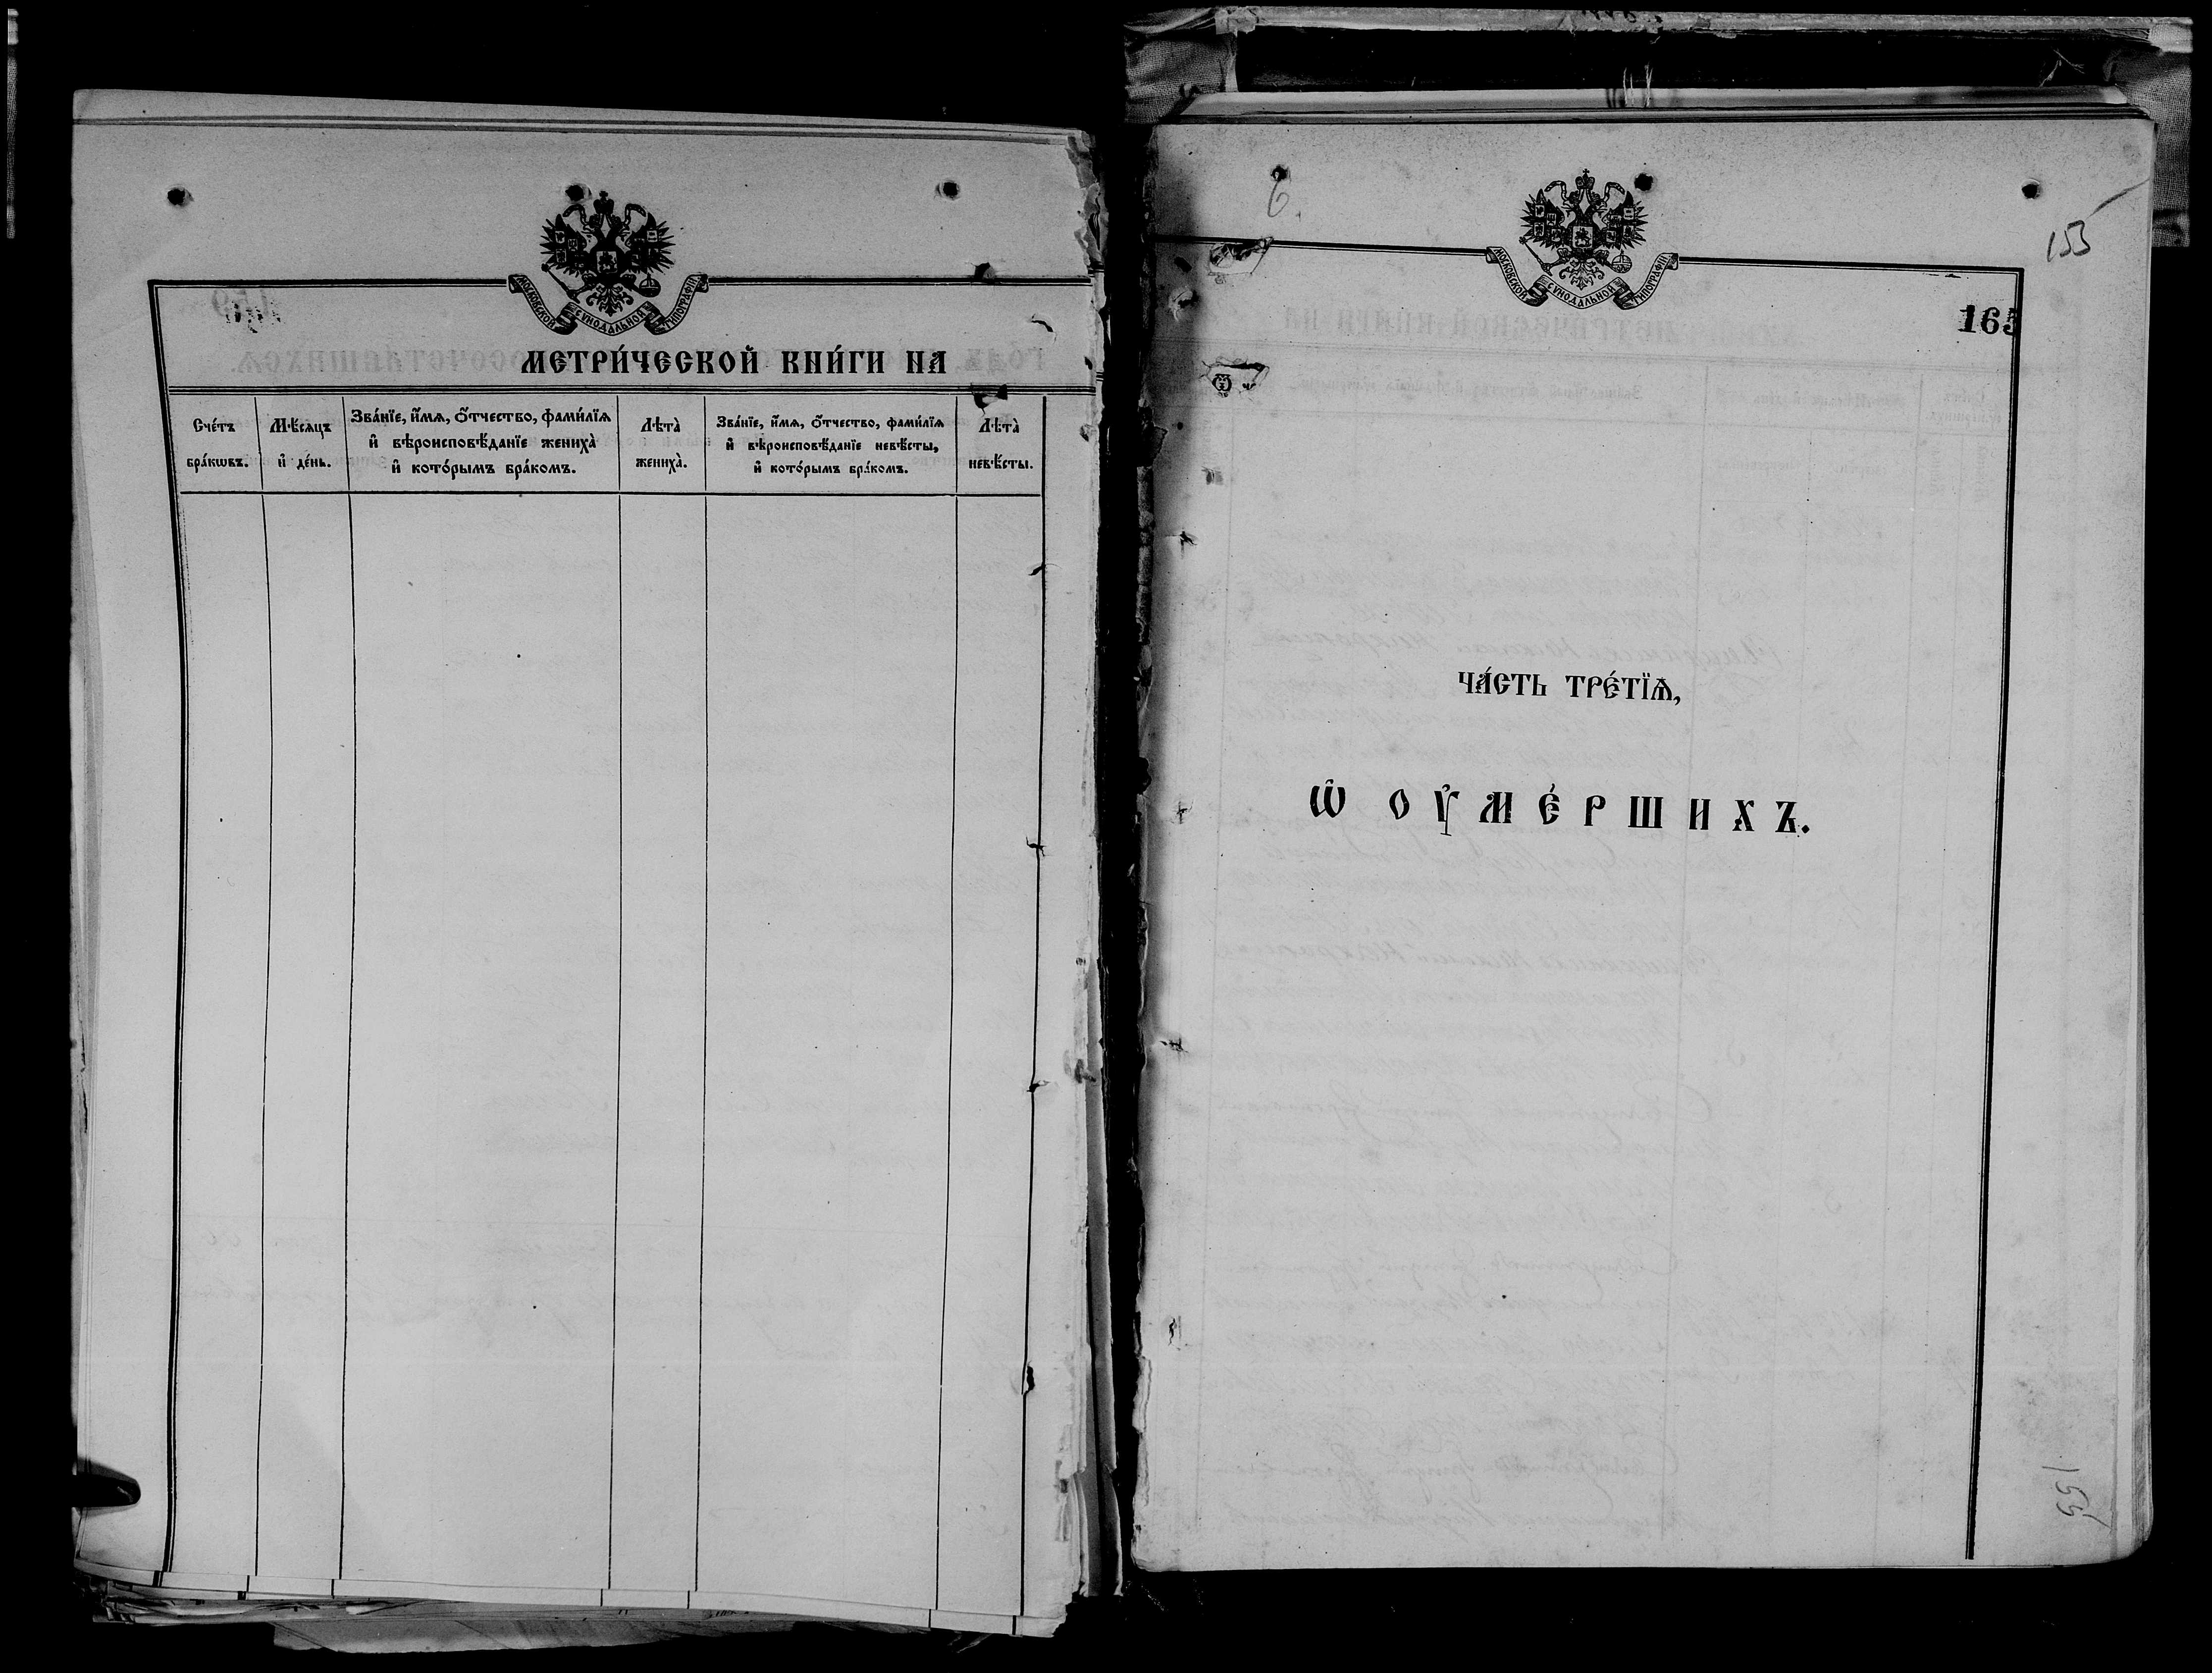 МОСКОВСКОЙ СѴНОДАЛЬНОЙ ТИПОГРАФІИ
МЕТРИ́ЧЕСКОЙ КНИ́ГИ НА
Сче́тъ бра́кѡвъ.
Мѣ́сяцъ и҆ де́нь.
Зва́нїе, и҆́мѧ, ѻ҆́тчество, фами́лїѧ
и҆ вѣроисповѣ́данїе жениха̀
и҆ кото́рымъ бра́комъ.
Лѣта̀ жениха̀.
Зва́нїе, и҆́мѧ, ѻ҆́тчество, фами́лїѧ
и҆ вѣроисповѣ́данїе невѣ́сты,
и҆ кото́рымъ бра́комъ.
Лѣта̀ невѣ́сты.
6.
155
МОСКОВСКОЙ СѴНОДАЛЬНОЙ ТИПОГРАФІИ
165
ЧА́СТЬ ТРЕ́ТЇѦ,
Ѡ҆ ОУ҆МЕ́РШИХЪ.
155